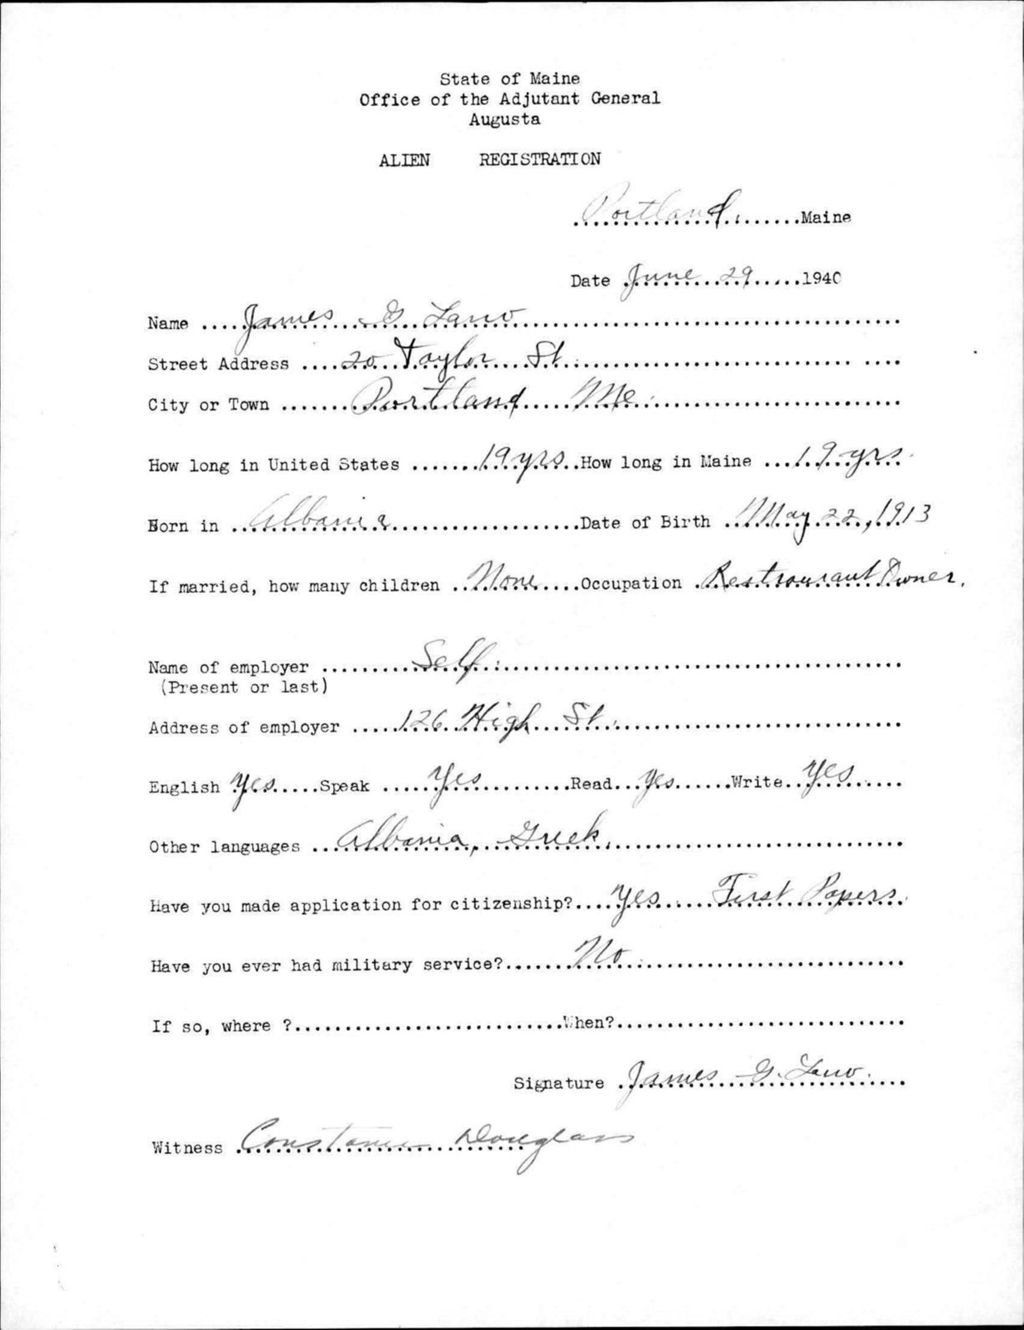 State of Maine
Office of the Adjutant General
Augusta
ALIEN REGISTRATION
Portland, Maine
Date June 29 1940
Name James G. Lano
Street Address 20 Taylor St.
City or Town Portland Me.
How long in United States 19 yrs. How long in Maine 19 yrs.
Born in Albania Date of Birth May 22, 1913
If married, how many children None Occupation Restraurant Owner.
Name of employer Self.
(Present or last)
Address of employer 126 High St.
English Yes Speak Yes Read Yes Write Yes.
Other languages Albania, Greek.
Have you made application for citizenship? Yes First Papers.
Have you ever had military service? No.
If so, where ? When?
Signature James G. Lano.
Witness Constance Douglass